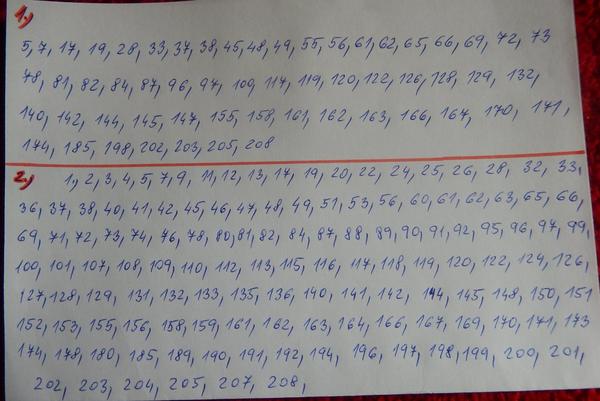 1.,
5, 7, 17, 19, 28, 33, 37, 38, 45, 48, 49, 55, 56, 61, 62, 65, 66, 69, 72, 73
78, 81, 82, 84, 87, 96, 97, 100, 117, 119, 120, 122, 126, 128, 129, 132,
140, 142, 144, 145, 147, 155, 158, 161, 162, 163, 166, 167, 170, 171,
174, 185, 198, 202, 203, 205, 208
2.,
1, 2, 3, 4, 5, 7, 9, 11, 12, 13, 17, 19, 20, 22, 24, 25, 26, 28, 32, 33,
36, 37, 38, 40, 41, 42, 45, 46, 47, 48, 49, 51, 53, 56, 60, 61, 62, 63, 65, 66
69, 71, 72, 73, 74, 76, 78, 80, 81, 82, 84, 87, 88, 89, 90, 91, 92, 95, 96, 97, 99,
100, 101, 107, 108, 109, 110, 112, 113, 115, 116, 117, 118, 119, 120, 122, 124, 126,
127, 128, 129, 131, 132, 133, 135, 136, 140, 141, 142, 144, 145, 148, 150, 151
152, 153, 155, 156, 158, 159, 161, 162, 163, 164, 166, 167, 169, 170, 171, 173
174, 178, 180, 185, 189, 190, 191, 192, 194, 196, 197, 198, 199, 200, 201,
202, 203, 204, 205, 207, 208,